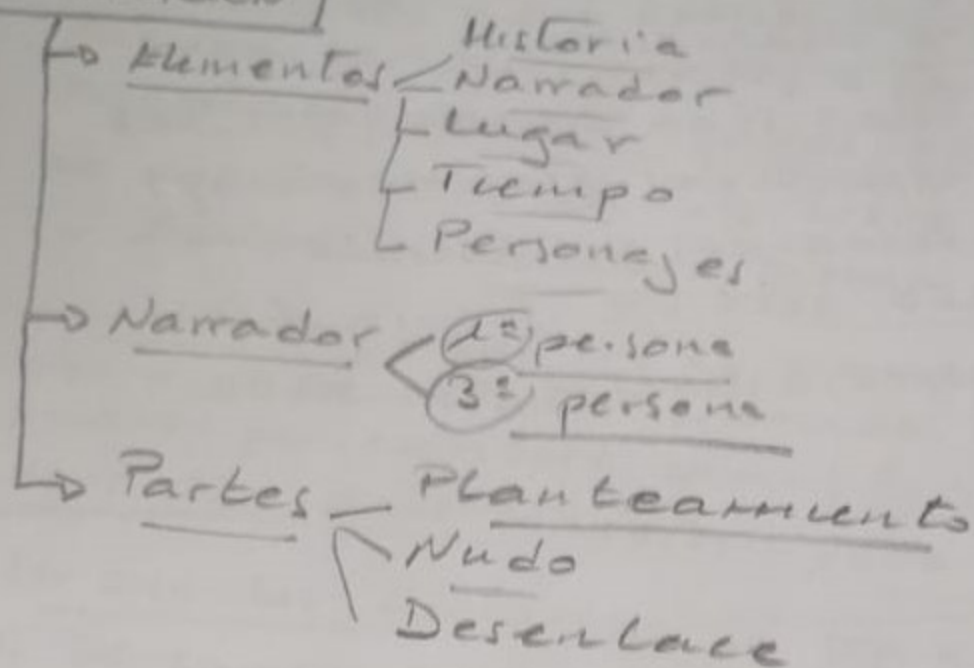 Elementos
Historia
Narrador
Lugar
Tiempo
Personajes
Narrador
1ª persona
3ª persona
Partes
Planteamiento
Nudo
Desenlace